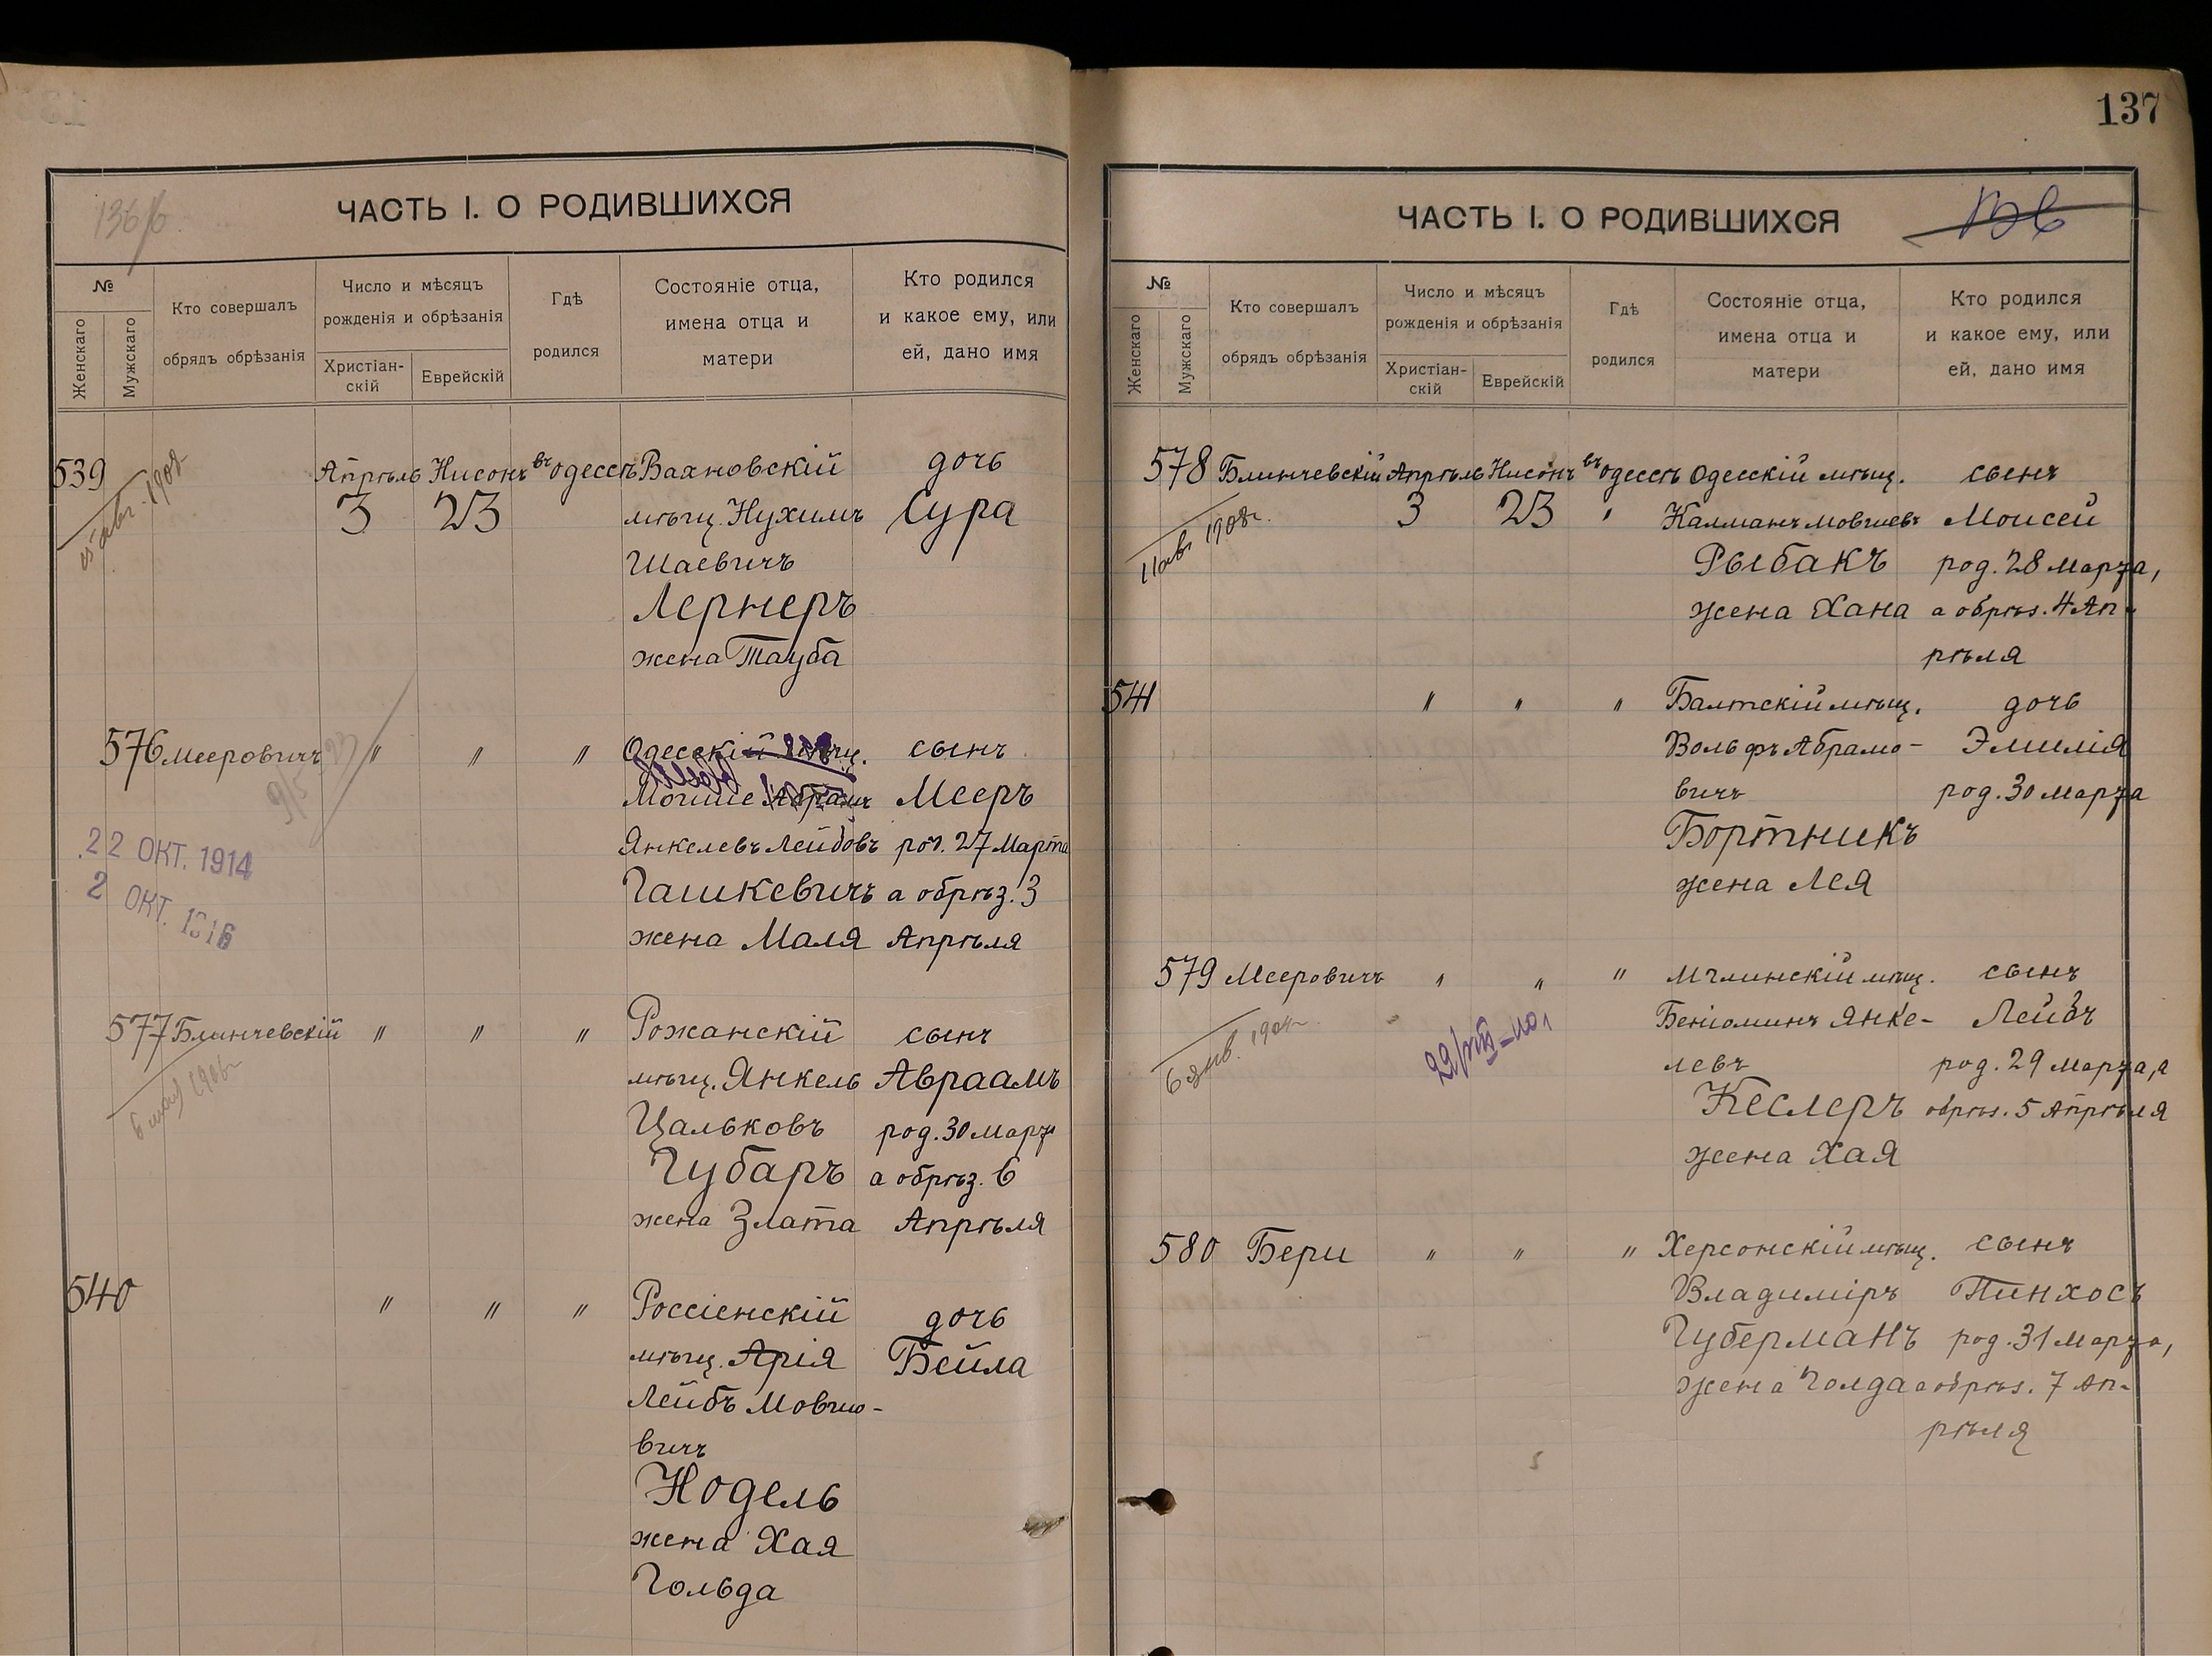 136/б
ЧАСТЬ I. О РОДИВШИХСЯ
№
Женскаго
Мужскаго
Кто совершалъ
обрядъ обрѣзанія
Число и мѣсяцъ
рожденія и обрѣзанія
Христіан-
скій
Еврейскій
Гдѣ
родился
Состояніе отца,
имена отца и
матери
Кто родился
и какое ему, или
ей, дано имя
539 Апрѣль Нисонъ въ Одессѣ Вахновскій дочь
3 23 мѣщ. Нухимъ Сура
Шаевичъ
Лернеръ
жена Тауба
576 Мееровичъ " " " Одесскій сынъ
Мошше Абрамъ Мееръ
Янкелевъ Лейбовъ род. 27 Марта
Гашкевичъ а обрѣз. 3
жена Маля Апрѣля
22 ОКТ. 1914
2 ОКТ. 1916
577 Блинчевскій " " " Рожанскій сынъ
мѣщ. Янкель Авраамъ
Цальковъ род. 30 Марта
Губаръ а обрѣз. 6
жена Злата Апрѣля
540 " " " Россіенскій дочь
мѣщ. Арія Бейла
Лейбъ Мовшо-
вичъ
Нодель
жена Хая
Гольда
137
ЧАСТЬ I. О РОДИВШИХСЯ
№
Женскаго
Мужскаго
Кто совершалъ
обрядъ обрѣзанія
Число и мѣсяцъ
рожденія и обрѣзанія
Христіан-
скій
Еврейскій
Гдѣ
родился
Состояніе отца,
имена отца и
матери
Кто родился
и какое ему, или
ей, дано имя
578 Блинчевскій Апрѣль Нисонъ въ Одессѣ Одесскій мѣщ. сынъ
3 23 " Калманъ Мовшевъ Моисей
Рыбакъ род. 28 Марта,
жена Хана а обрѣз. 4 Ап-
рѣля
541 " " " Балтскій мѣщ. дочь
Вольфъ Абрамо- Эмилія
вичъ род. 30 Марта
Бортникъ
жена Лея
579 Мееровичъ " " " Мглинскій мѣщ. сынъ
Беніоминъ Янке- Лейбъ
левъ род. 29 Марта, а
Кеслеръ обрѣз. 5 Апрѣля
жена Хая
580 Бери " " " Херсонскій мѣщ. сынъ
Владиміръ Пинхосъ
Губерманъ род. 31 Марта,
жена Голда а обрѣз. 7 Ап-
рѣля